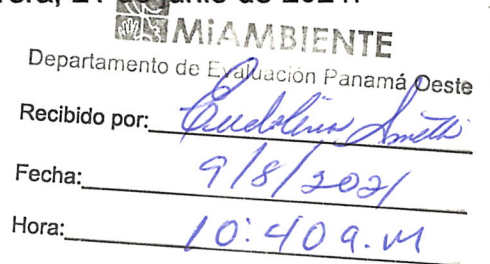 MiAMBIENTE
Departamento de Evaluación Panamá Oeste
Recibido por: Smith
Fecha: 9/8/2021
Hora: 10:40 a.m